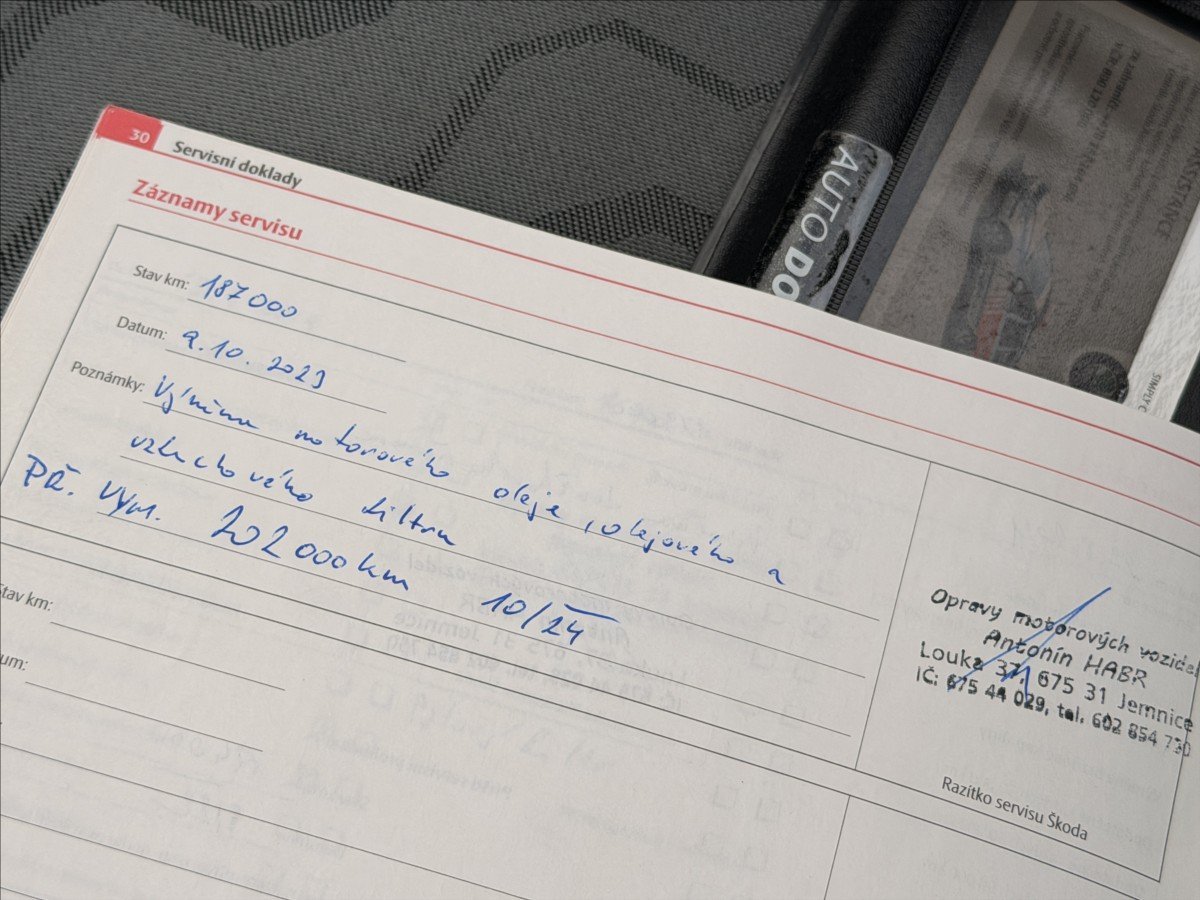 30 Servisní doklady
Záznamy servisu
Stav km: 187000
Datum: 9.10. 2023
Poznámky: Výměna motorového oleje, olejového a
vzduchového filtru
PŘ. VÝM. 202000km 10/24
Opravy motorových vozidel
Antonín HABR
Louka 37, 675 31 Jemnice
IČ: 675 44 029, tel. 602 854 730
Razítko servisu Škoda
Stav km:
AUTO DO
SIMPLY C